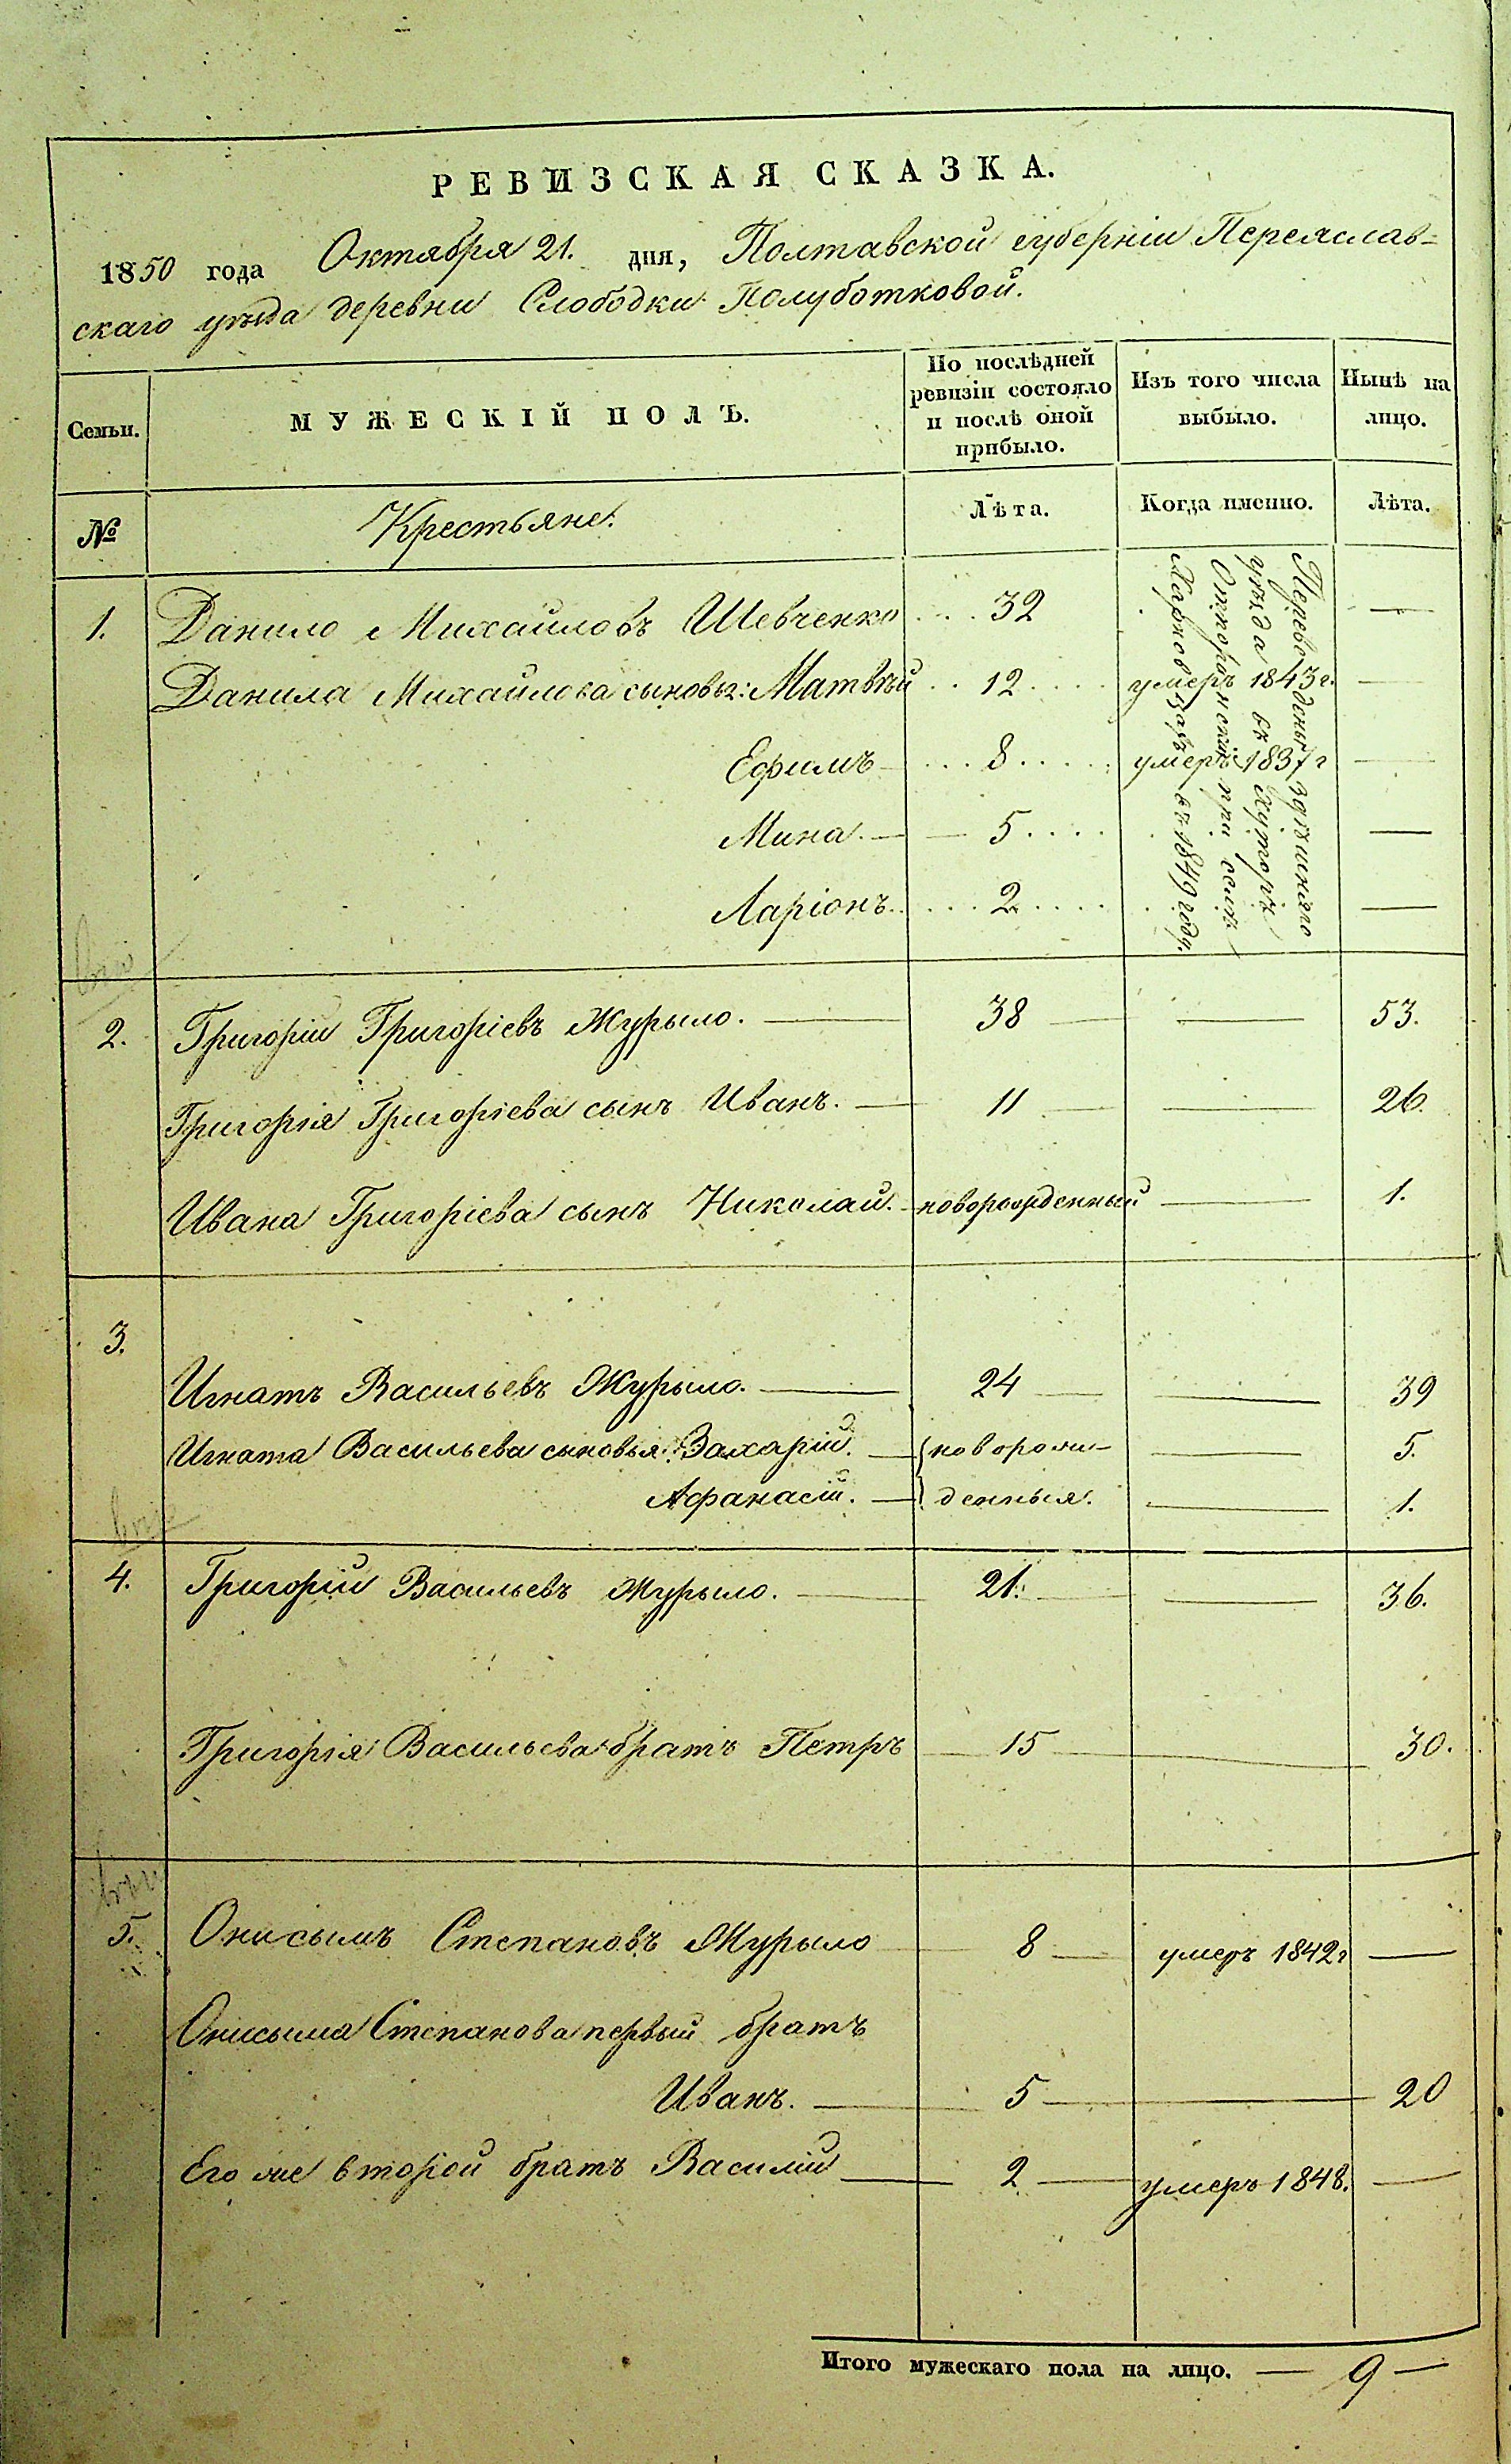 РЕВИЗСКАЯ СКАЗКА.
1850 года Октября 21. дня, Полтавской губерніи Переяслав-
скаго уѣзда деревни Слободки Полуботковой.
Семьи.
МУЖЕСКІЙ ПОЛЪ.
По послѣдней
ревизіи состояло
и послѣ оной
прибыло.
Изъ того числа
выбыло.
Нынѣ на
лицо.
№
Крестьяне.
Лѣта.
Когда именно.
Лѣта.
1. Данило Михайловъ Шевченко ... 32 —
Данила Михайлова сыновья: Матвѣй .. 12 .... умеръ 1843 г. —
Ефимъ ... 8 .... умеръ 1837 г —
Мина. — 5 .... —
Ларіонъ. ... 2 .... —
Переведены здѣшняго
уѣзда въ хуторъ
при селѣ
въ 1849 году.
2. Григорій Григоріевъ Журыло. — 38 — — 53.
Григорія Григоріева сынъ Иванъ. — 11 — — 26.
Ивана Григоріева сынъ Николай. новорожденный — 1.
3.
Игнатъ Васильевъ Журыло. — 24 — — 39
Игната Васильева сыновья: Захарій. — новорож- — 5.
Афанасій. — денныя. — 1.
4. Григорій Васильевъ Журыло. — 21. — — 36.
Григорія Васильева братъ Петръ — 15 — — 30.
5. Онисымъ Степановъ Журыло — 8 — умеръ 1842 г —
Онисыма Степанова первый братъ
Иванъ. — 5 — — 20
Его же второй братъ Василій — 2 — умеръ 1848. —
Итого мужескаго пола на лицо. — 9 —